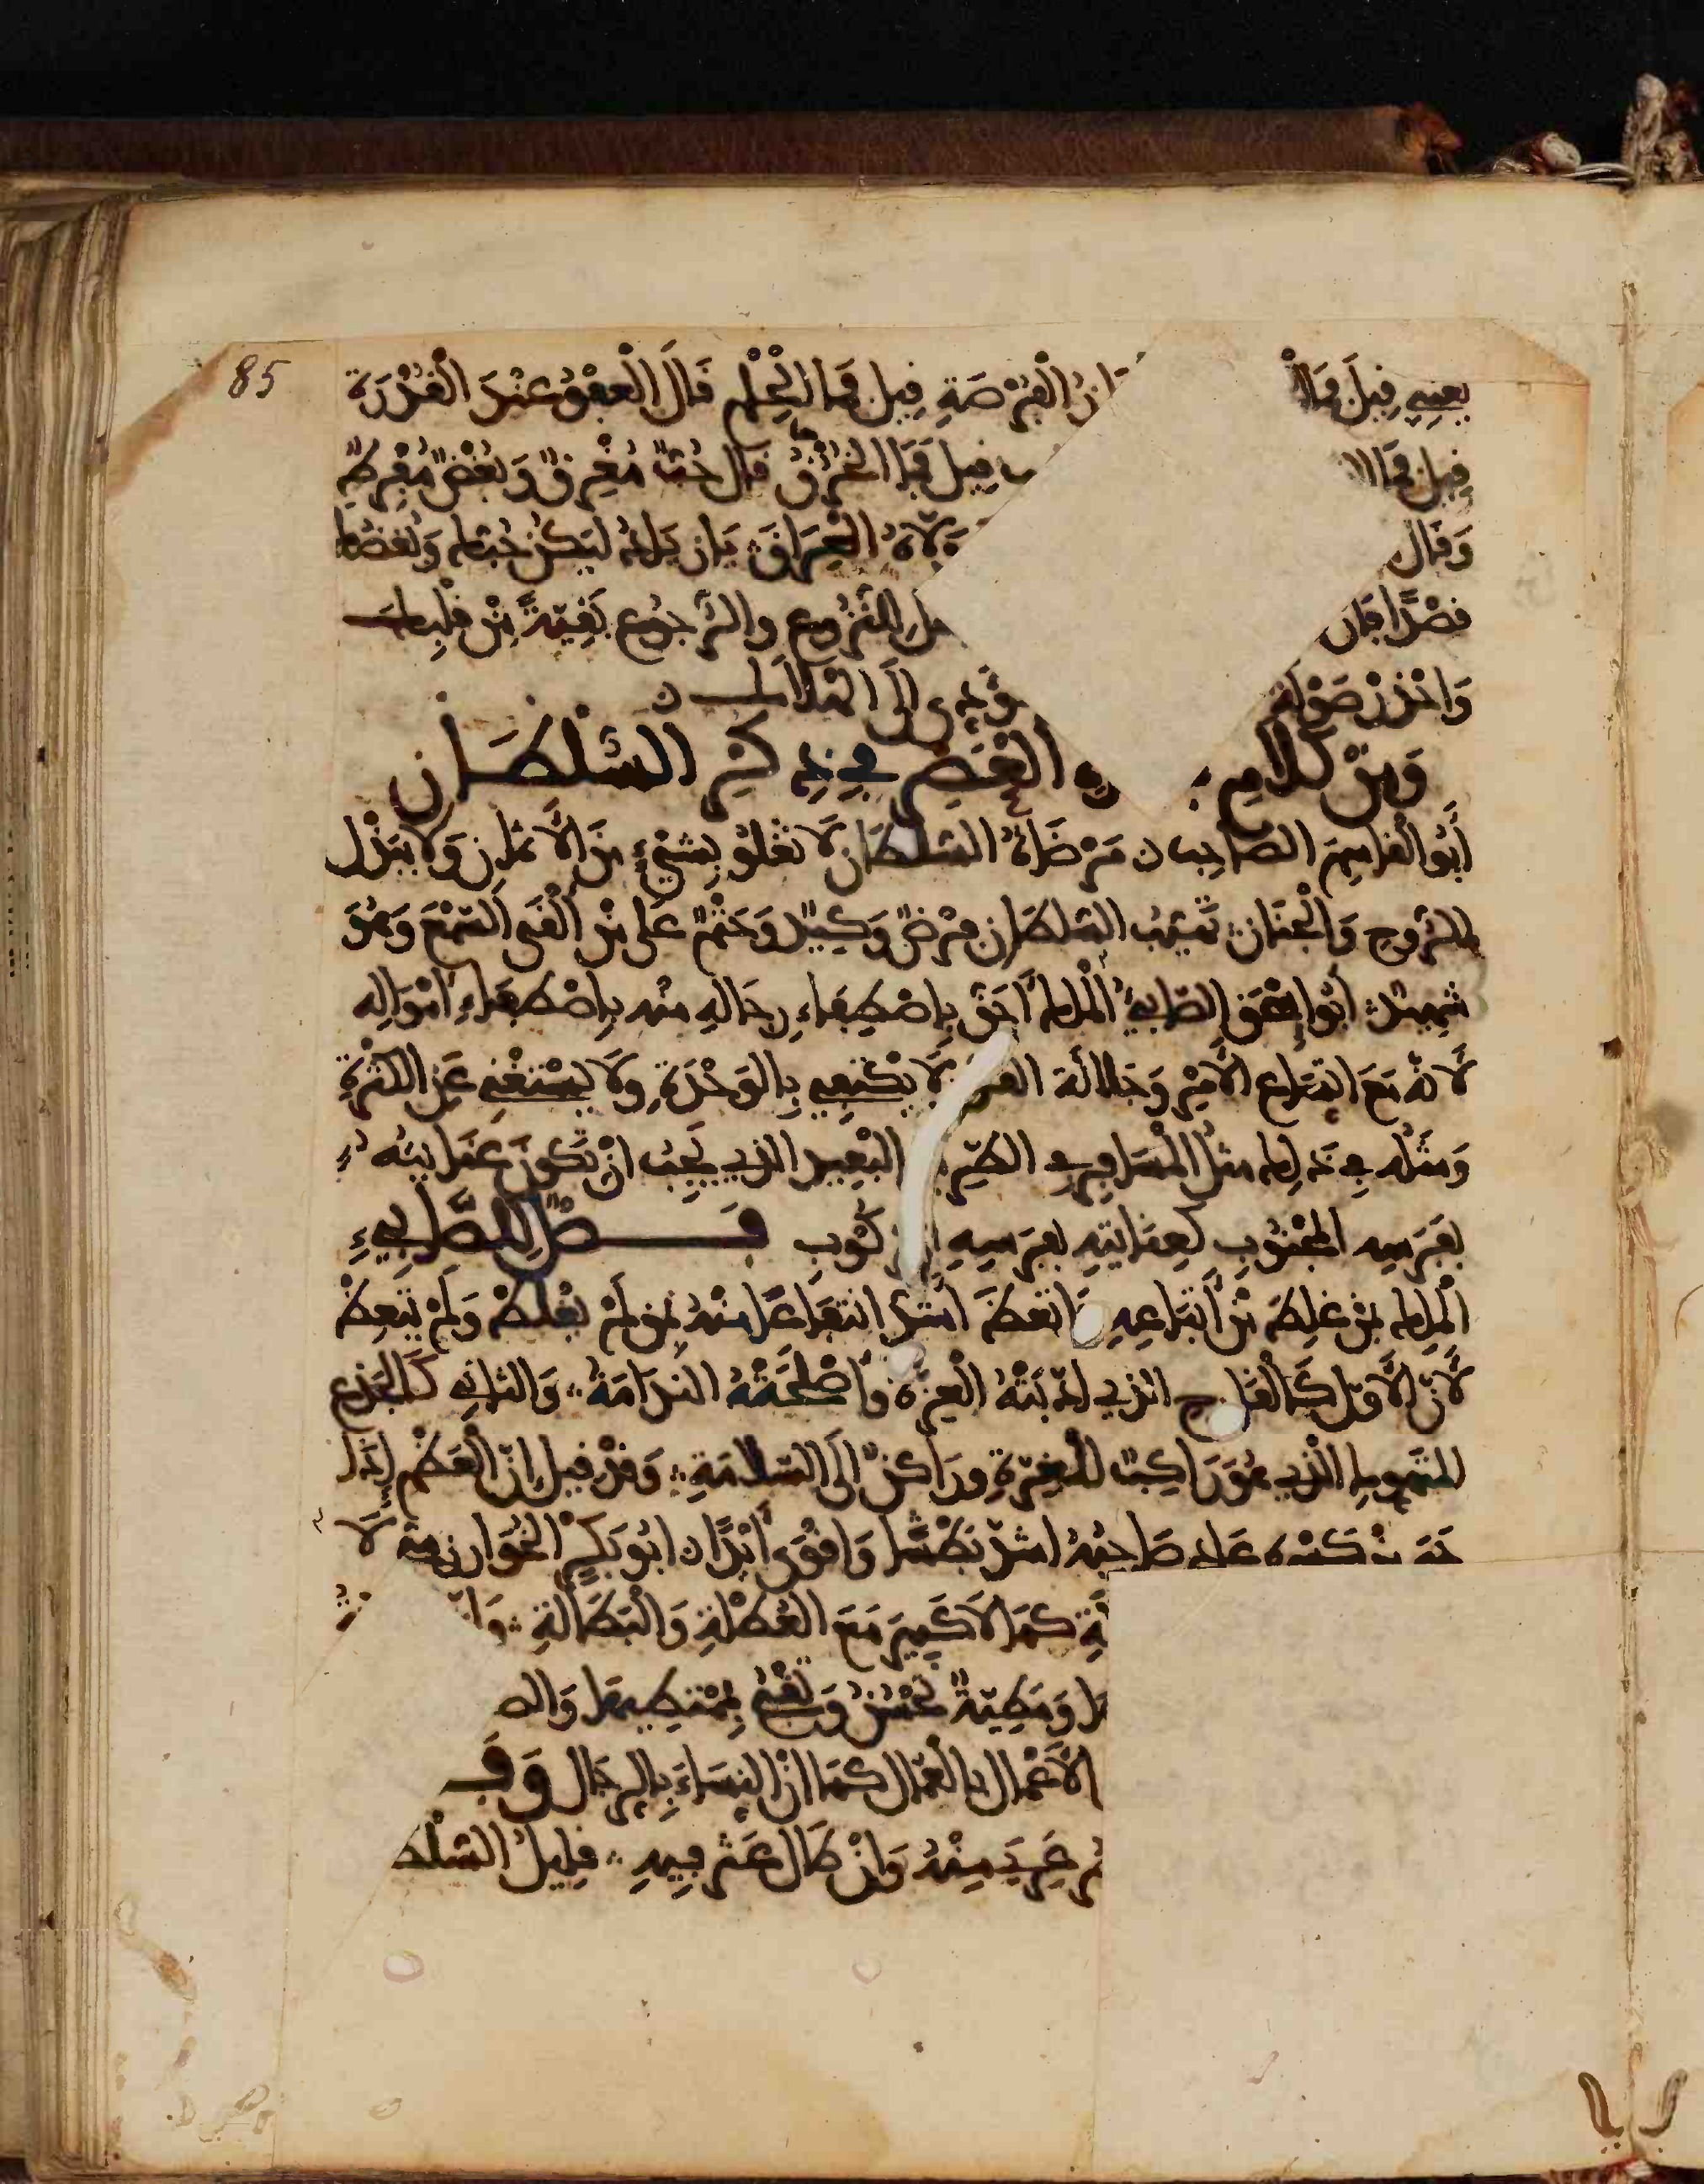 85
يعنيه قيل فما ان الفرصة قيل فما الحلم قال العفو عند القدرة
قيل فما قيل فما الخرق قال حب مغرق وبغض مفرط
وقال الفراق بان يكن لیکن حبك وبغضك
قصدا فان النزوع والرجوع بقية من قلبك
واحذر صولة يؤدي الى الهلاك
ومن كلام العصر في ذكر السلطان
أبو القاسم الصاحب مرضاة السلطان لا تغلو بشيء من الأثمان ولا ببذل
الروح والجنان تهيب السلطان فرض وكيد وحتم على من ألقى السمع وهو
شهيد أبو إسحق الصابي الملك أحق باصطفاء رجاله منه باصطفاء أمواله
لأنه مع اتساع الأمر وجلالة القدر لا يكتفي بالوحدة ولا يستغني عن الكثرة
ومثله في ذلك مثل المسافر في الطريق البعيد الذي يجب أن تكون عنايته
بفرسه المجنوب كعنايته بفرسه المركوب فصل للصابيء
الملك بمن غلط من أتباعه فاتعظ أشد انتفاعا منه بمن لم يغلط ولم يتعظ
لأن الأول كالقارح الذي أدبته الغرة وأصلحته الندامة والثاني كالجذع
المتهوك الذي هو راكب للغرة وراكن إلى السلامة وقد قيل إن العظم إذا
جبر من كسره عاد صاحبه أشد بطشا وأقوى أيدا أبو بكر الخوارزمي لا
كما لا كبير مع العطلة والبطالة
ومطية تحسن وتقبح بممتطيها والص
الأعمال بالعمال كما أن النساء بالرجال وق
عنه منه وإن طال عثر فيه قليل السلط